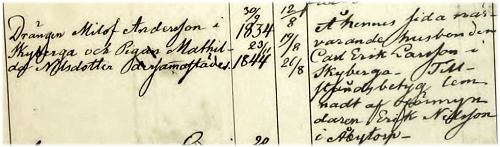 Drängen Milof Andersson i
Skyberga och Pigan Mathil-
da Nilsdotter
30/9 1834
23/11 1844
12/8
19/8
26/8
Å hennes sida när-
varande husbonden
Carl Erik Larsson i
Skyberga. Till-
ståndsbetyg lem-
nadt af Förmyn
daren Erik Nilsson
i Åbytorp.